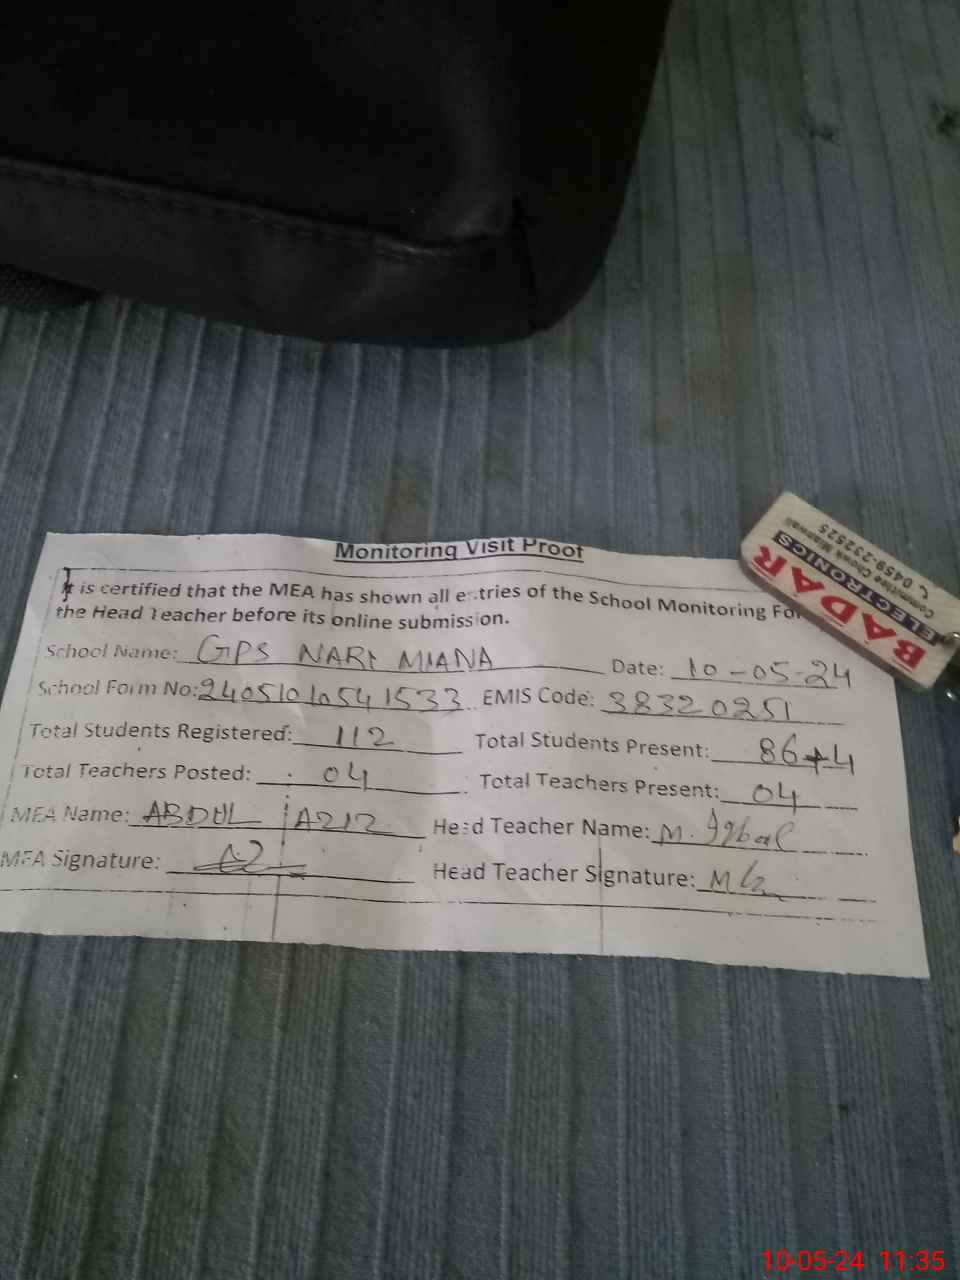 Monitoring Visit Proof
It is certified that the MEA has shown all entries of the School Monitoring For
the Head Teacher before its online submission.
School Name: GPS NARI MIANA Date: 10-05-24
School Form No: 2405101054 1533 EMIS Code: 38320251
Total Students Registered: 112 Total Students Present: 86+4
Total Teachers Posted: 04 Total Teachers Present: 04
MEA Name: ABDUL AZIZ Head Teacher Name: M. Iqbal
MEA Signature: AZ Head Teacher Signature:
BADAR
ELECTRONICS
Committee Chowk Mianwali
0459-2325525
10-05-24 11:35